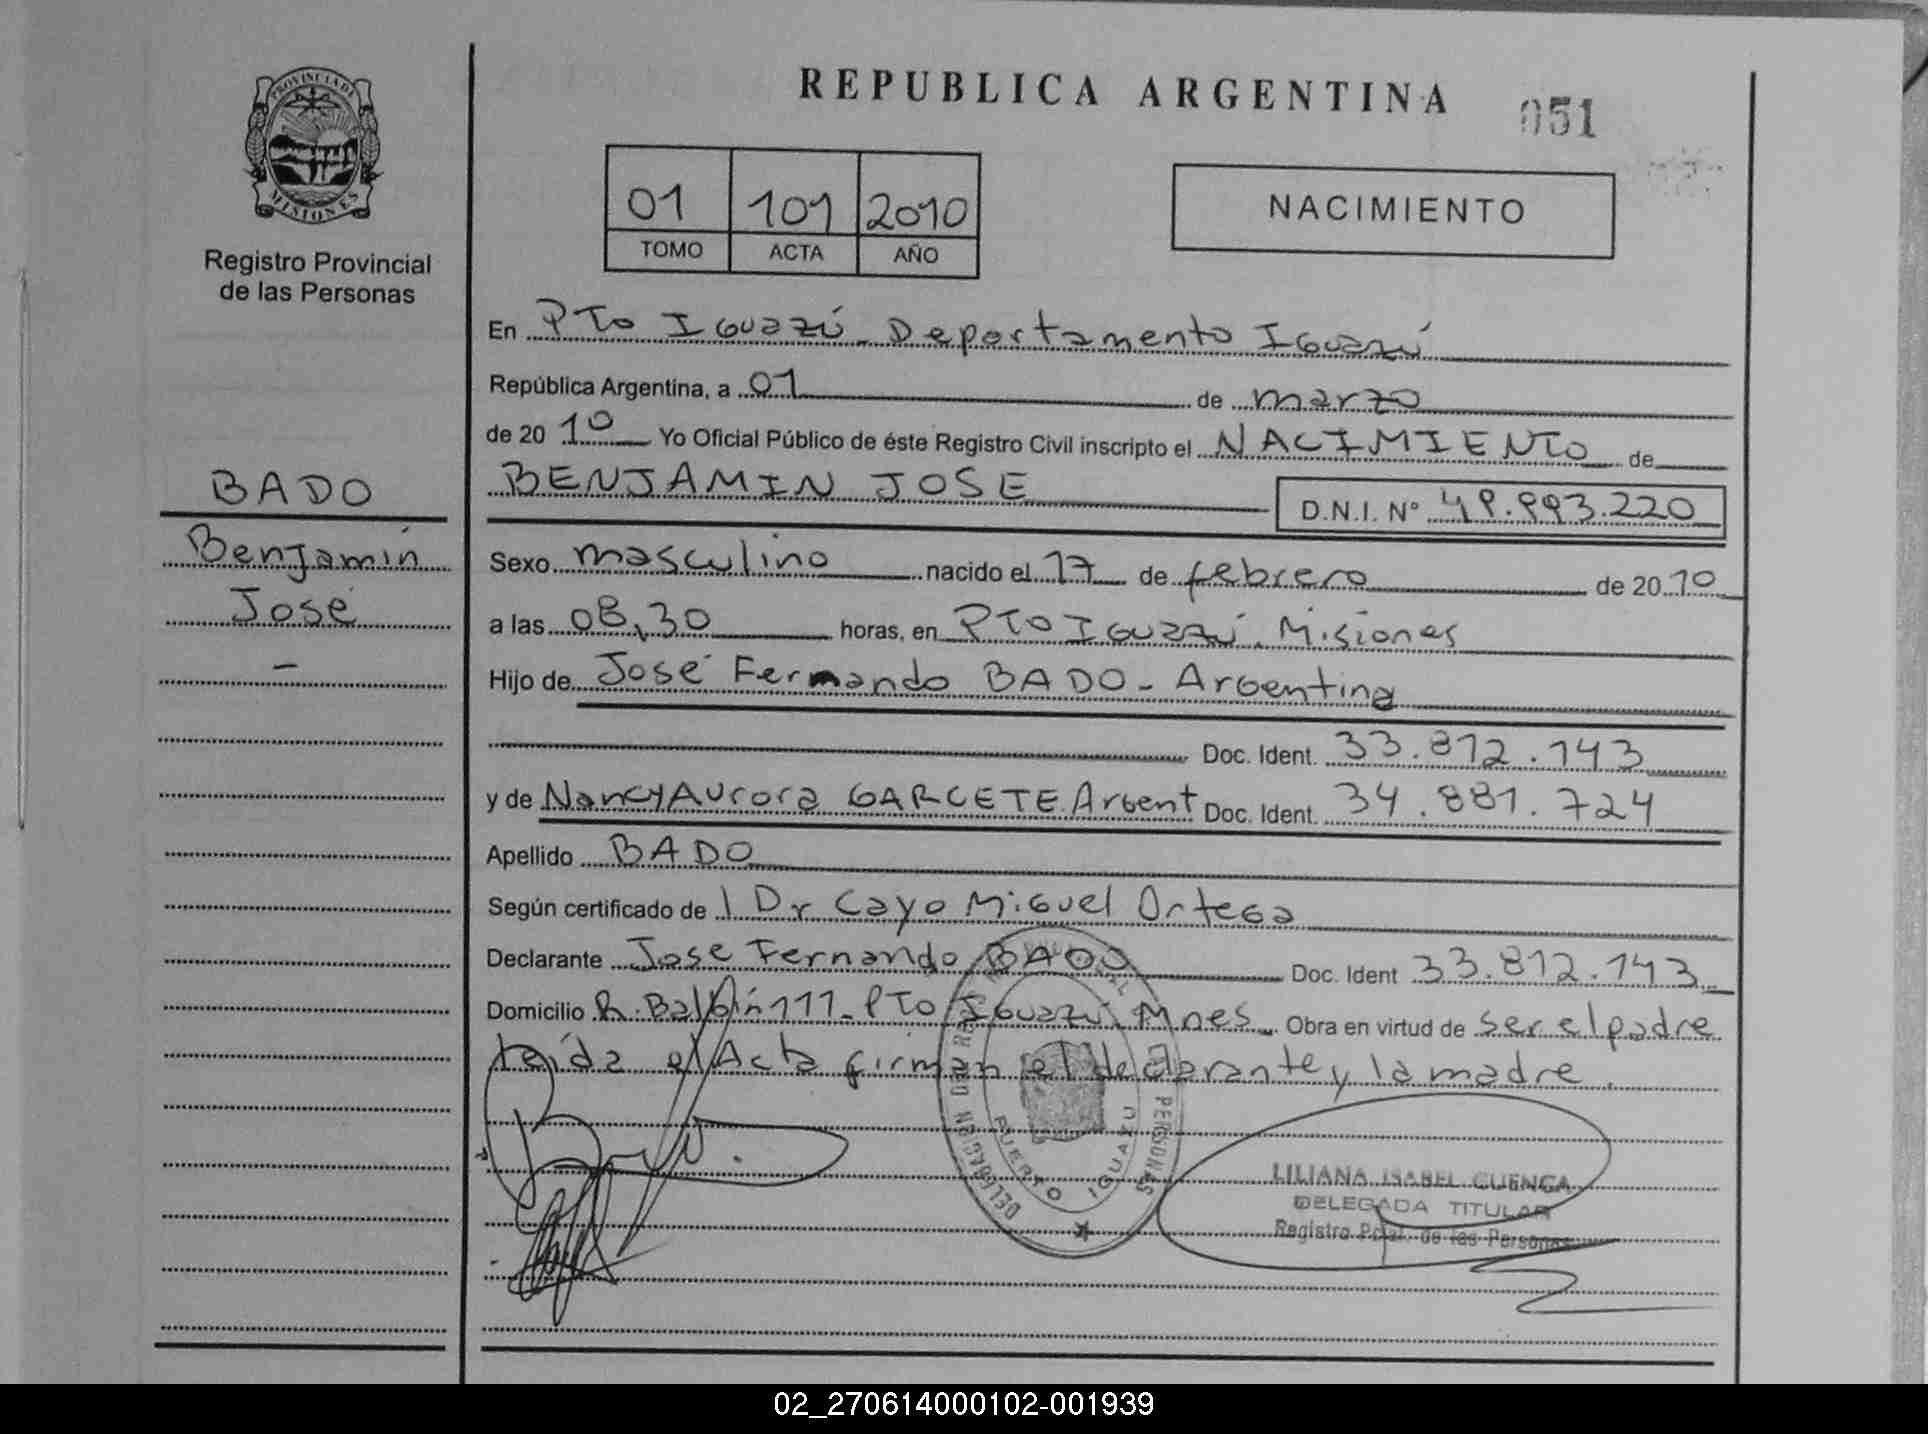 PROVINCIA DE
MISIONES
Registro Provincial
de las Personas
REPUBLICA ARGENTINA
051
01 101 2010
TOMO ACTA AÑO
NACIMIENTO
En Pto Iguazú - Departamento Iguazú
República Argentina, a 01 de marzo
de 2010 Yo Oficial Público de éste Registro Civil inscripto el NACIMIENTO de
BENJAMIN JOSE D.N.I. Nº
BADO
Benjamín
José
-
Sexo masculino nacido el 17 de febrero de 2010
a las 08,30 horas, en Pto Iguazú, Misiones
Hijo de José Fernando BADO - Argentina
Doc. Ident. 33.812.143
y de Nancy Aurora GARCETE Argent Doc. Ident. 34.881.724
Apellido BADO
Según certificado de l Dr Cayo Miguel Ortega
Declarante Jose Fernando BADO Doc. Ident 33.812.143
Domicilio R. Balbín 111 - Pto Iguazú, Mnes Obra en virtud de ser el padre
Leída el Acta firman el declarante y la madre.
DELEGACION DEL PERSONAS
PUERTO IGUAZU
LILIANA ISABEL CUENCA
DELEGADA TITULAR
Registro Pcial. de las Personas
02_270614000102-001939